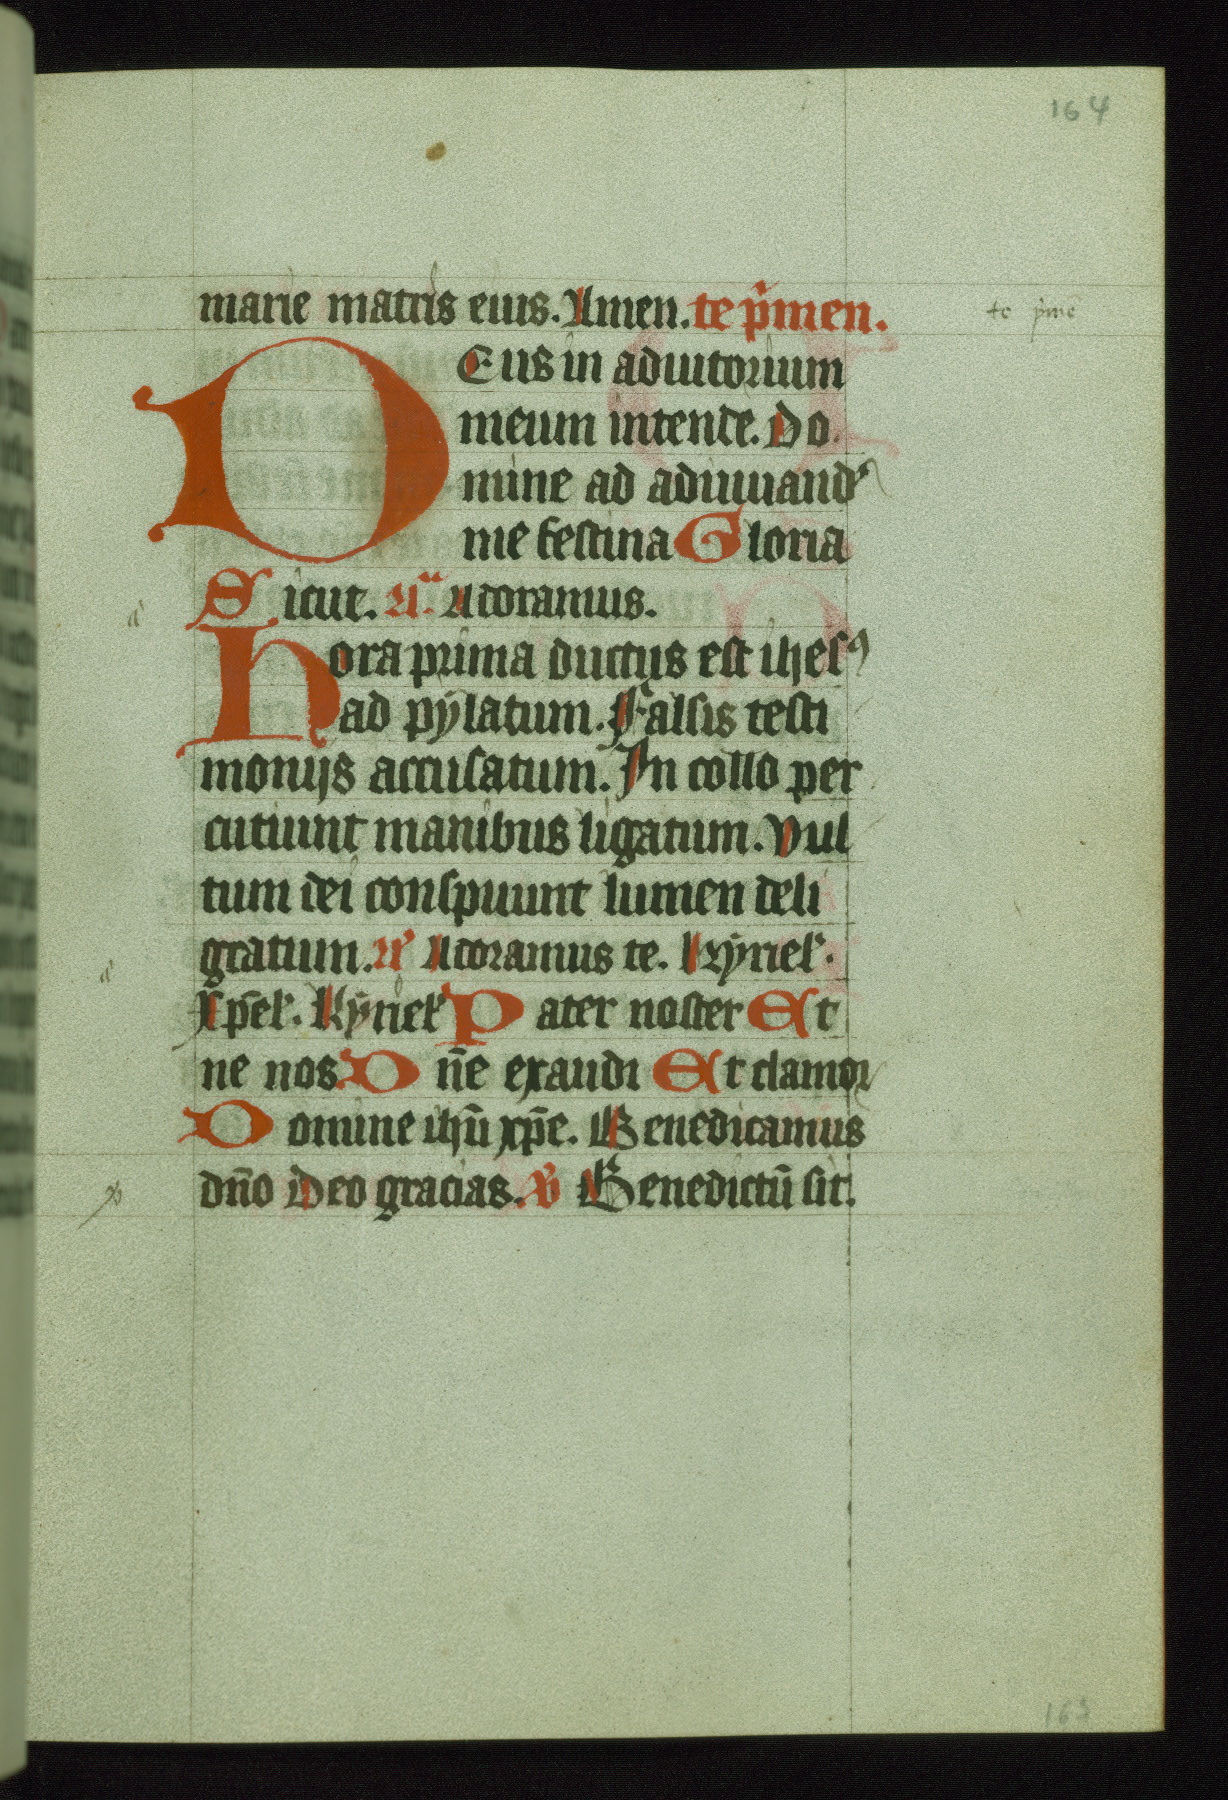 164
marie matris eius. Amen. te p̄men.
te p̄me
DEus in adiutorium
meum intende. Do
mine ad adiuuand
me festina Gloria
Sicut. a. Adoramus.
hora prima ductus est ihesꝰ
ad pÿlatum. Falsis testi
monijs accusatum. In collo per
cutiunt manibus ligatum. Vul
tum dei conspuunt lumen deli
gratum. Adoramus te. kÿriel.
Xp̄el. kÿriel Pater noster Et
ne nos Dn̄e exaudi Et clamor
Domine ihū xp̄e. Benedicamus
dn̄o Deo gracias. Benedictū sit.
163